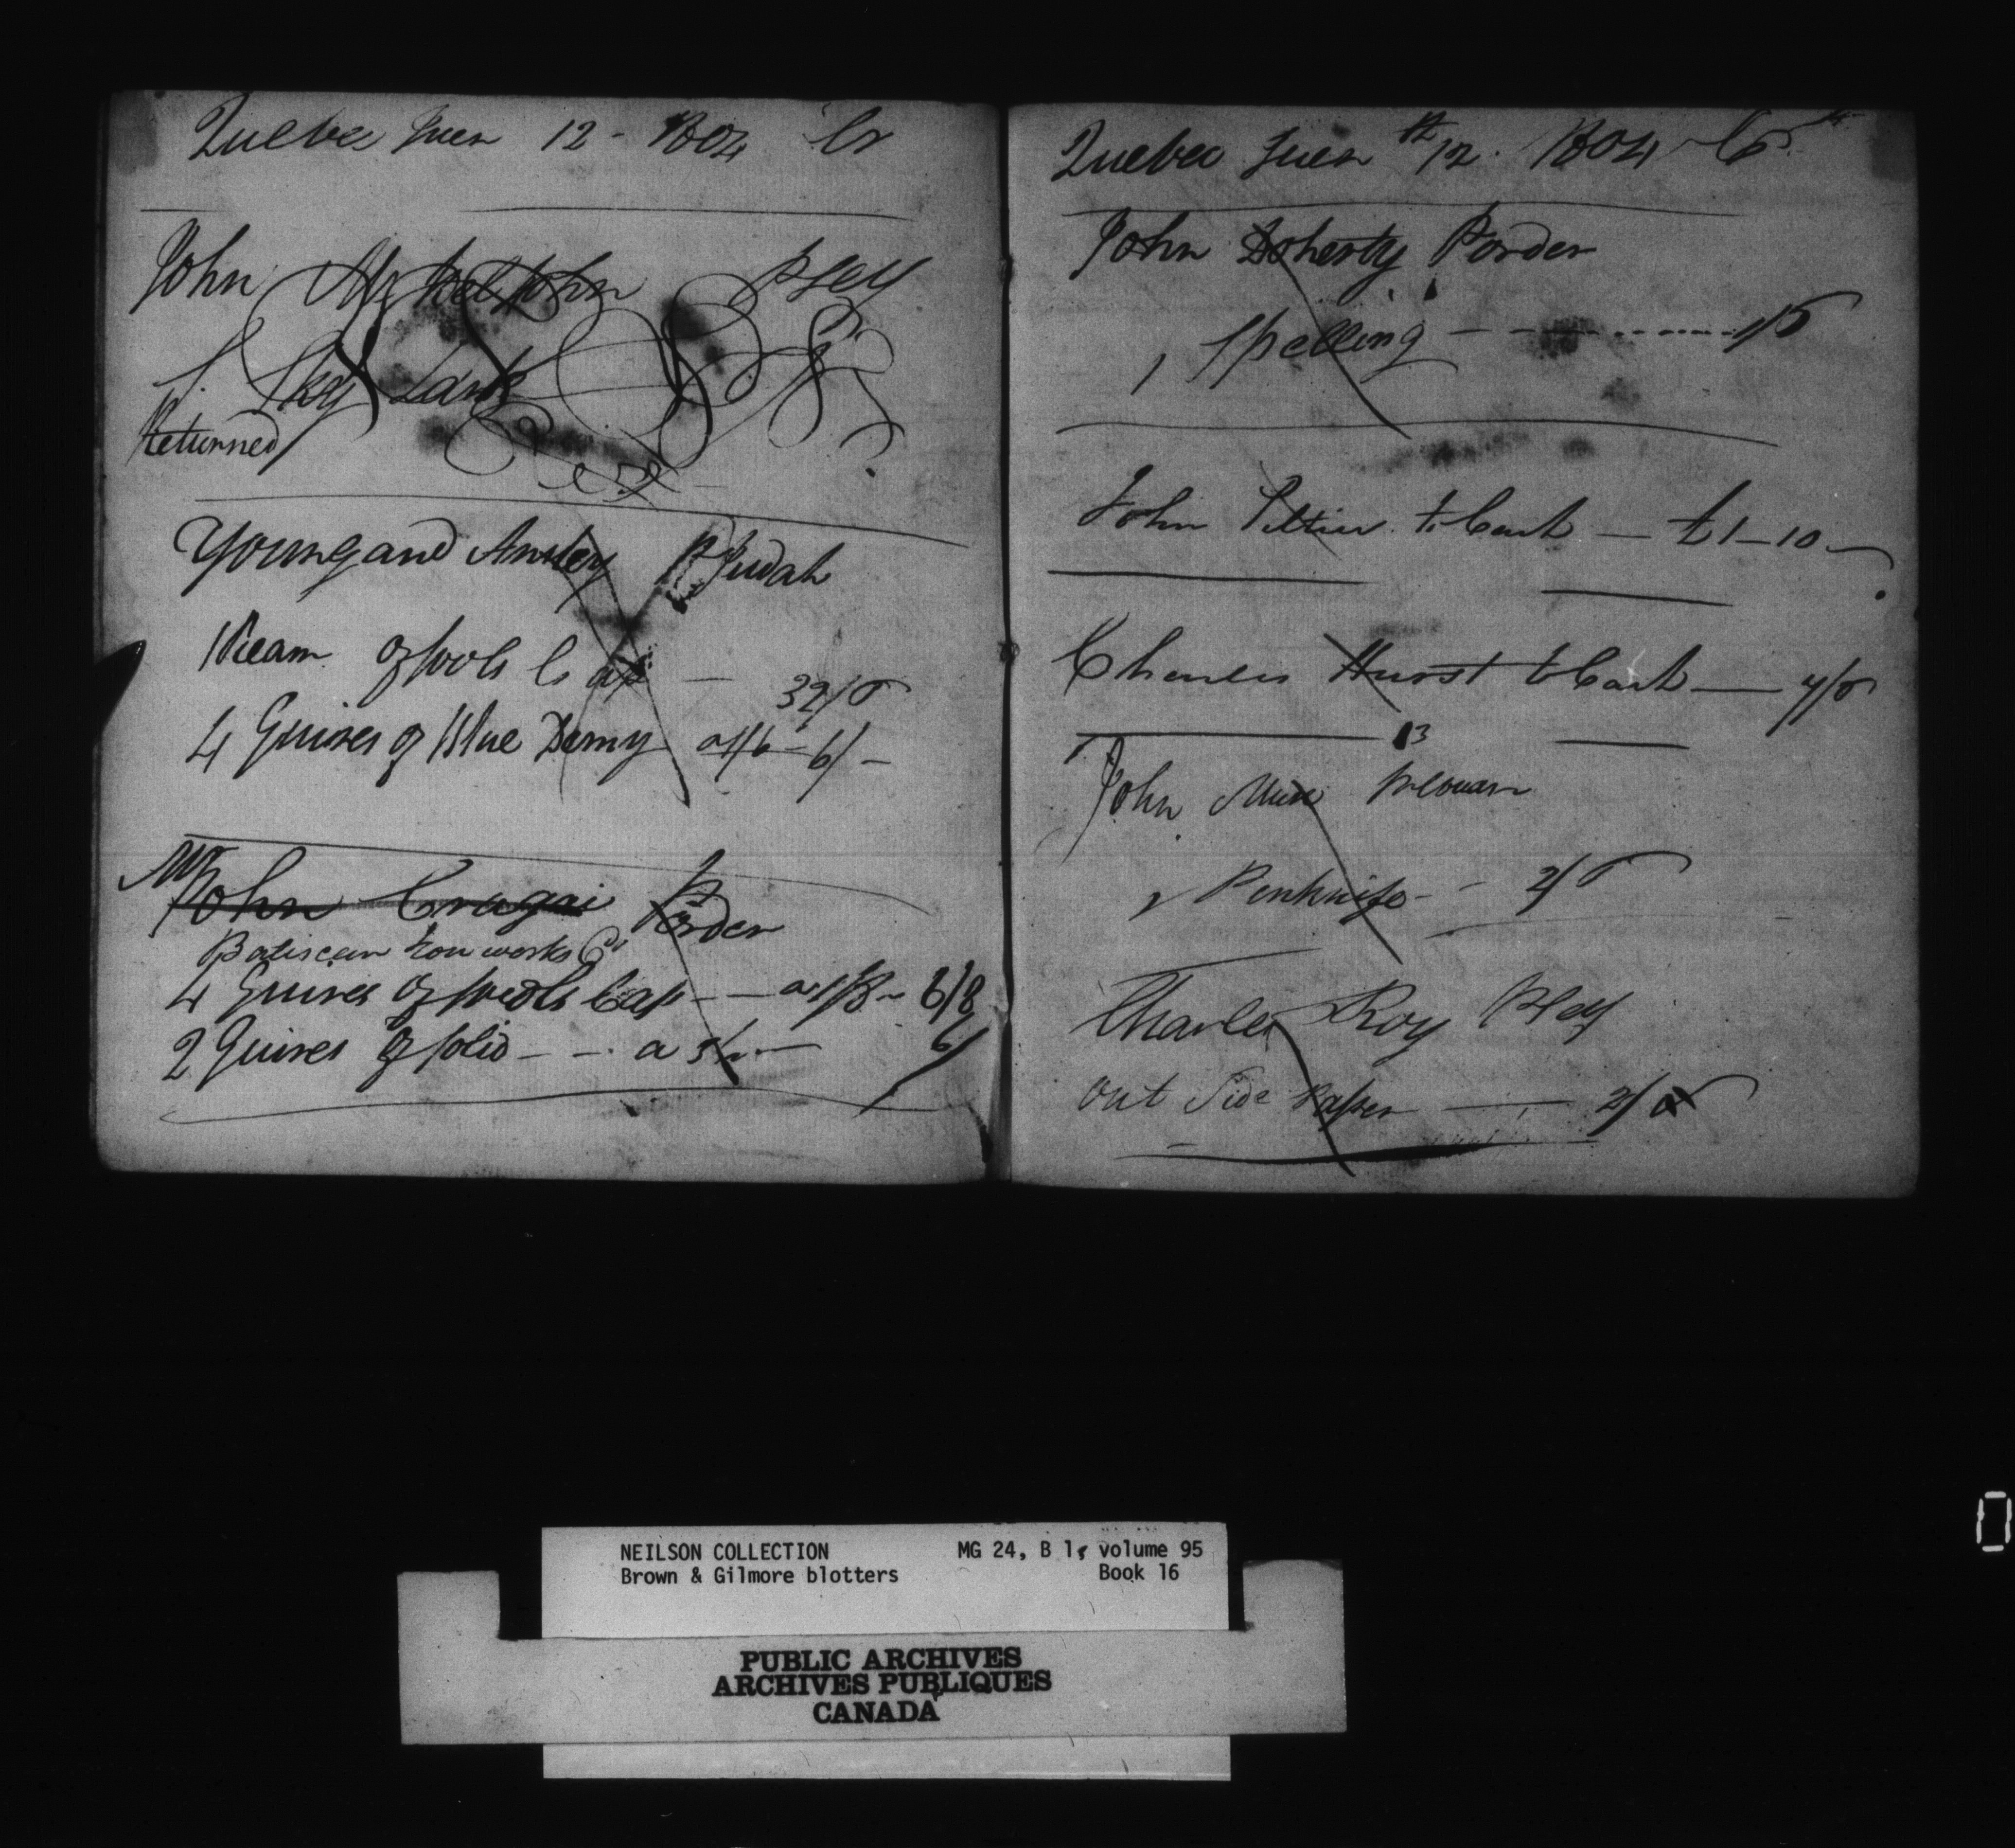 Quebec Juen 12 - 1804 Cr
John Mc keel John P Ley
1. Sky Lark
Returned
Young and Ansley P Judah
1 Ream of fools Cap — 32/6
4 Quires of Blue Demy a 1/6 - 6/-
Mr John Cragai P order
Batiscan Iron works Co
4 Quires of fools Cap - - a 1/8 - 6/8
2 Quires of folio - - . a 3/ — 6/
Quebec Juen th 12. 1804 Cr
John Doherty P order
1 Spelling - - - - 1/6
John Peltier to Cash — £1-10-
Charles Hurst to Cash —
13
John Mure
1 Penknife - - 2/6
Charles Roy P Ley
out Side Paper —
NEILSON COLLECTION MG 24, B 1, volume 95
Brown & Gilmore blotters Book 16
PUBLIC ARCHIVES
ARCHIVES PUBLIQUES
CANADA
0